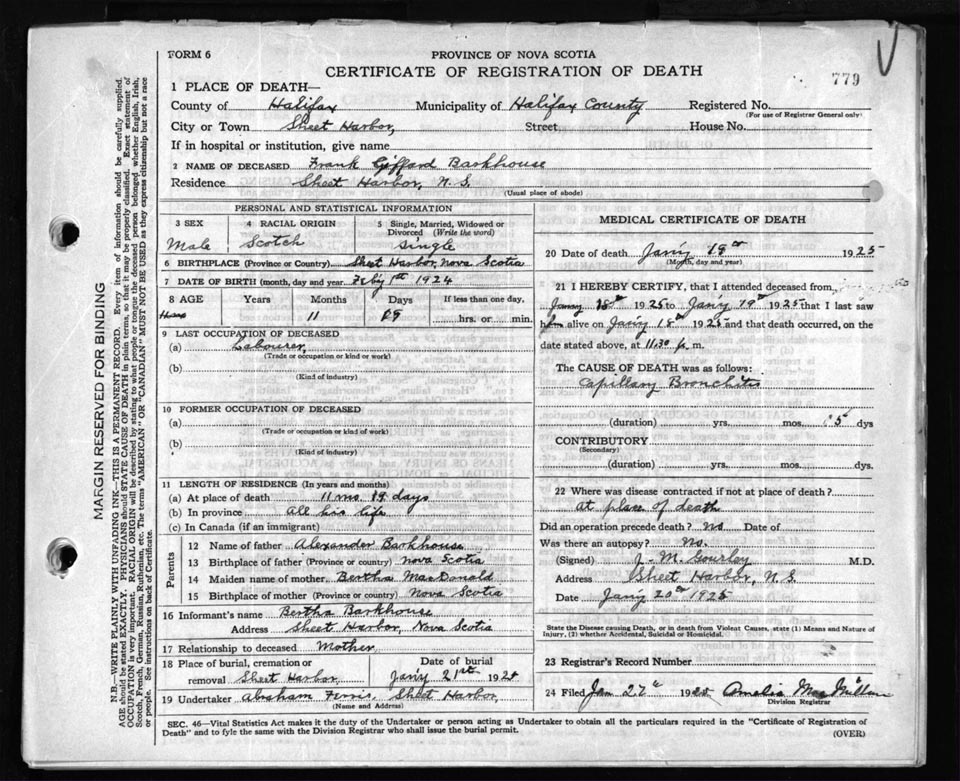 779
FORM 6
PROVINCE OF NOVA SCOTIA
CERTIFICATE OF REGISTRATION OF DEATH
1 PLACE OF DEATH—
County of Halifax Municipality of Halifax County Registered No.
(For use of Registrar General only)
City or Town Sheet Harbor, Street House No.
If in hospital or institution, give name
2 NAME OF DECEASED Frank Giffard Barkhouse
Residence Sheet Harbor, N. S.
(Usual place of abode)
PERSONAL AND STATISTICAL INFORMATION
3 SEX 4 RACIAL ORIGIN 5 Single, Married, Widowed or Divorced (Write the word)
Male Scotch Single
6 BIRTHPLACE (Province or Country) Sheet Harbor, Nova Scotia
7 DATE OF BIRTH (month, day and year) Feb'y 1st 1924
8 AGE Years Months Days If less than one day,
11 19 hrs. or min.
9 LAST OCCUPATION OF DECEASED
(a) Labourer
(Trade or occupation or kind or work)
(b)
(Kind of industry)
10 FORMER OCCUPATION OF DECEASED
(a)
(Trade or occupation or kind of work)
(b)
(Kind of industry)
11 LENGTH OF RESIDENCE (In years and months)
(a) At place of death 11 mo. 19 days
(b) In province all his life
(c) In Canada (if an immigrant)
Parents
12 Name of father Alexander Barkhouse
13 Birthplace of father (Province or country) Nova Scotia
14 Maiden name of mother Bertha MacDonald
15 Birthplace of mother (Province or country) Nova Scotia
16 Informant's name Bertha Barkhouse
Address Sheet Harbor, Nova Scotia
17 Relationship to deceased Mother
18 Place of burial, cremation or removal Sheet Harbor, Date of burial Jan'y 21st 192
19 Undertaker Abraham Ferris Sheet Harbor,
(Name and Address)
MEDICAL CERTIFICATE OF DEATH
20 Date of death Jan'y 19th 1925
(Month, day and year)
21 I HEREBY CERTIFY, that I attended deceased from,
18th 1925 to Jan'y 19th 1925 that I last saw
him alive on Jan'y 18th 1925 and that death occurred, on the
date stated above, at 11.30 p. m.
The CAUSE OF DEATH was as follows:
Capillary Bronchitis
(duration) yrs. mos. 5 dys
CONTRIBUTORY
(Secondary)
(duration) yrs. mos. dys.
22 Where was disease contracted if not at place of death?
at place of death
Did an operation precede death? No Date of
Was there an autopsy? No.
(Signed) J. M. Gourley M.D.
Address Sheet Harbor, N. S.
Date Jan'y 20th 1925
State the Disease causing Death, or in death from Violent Causes, state (1) Means and Nature of
Injury, (2) whether Accidental, Suicidal or Homicidal.
23 Registrar's Record Number
24 Filed Jan 27th 1925 Amelia MacMillan
Division Registrar
SEC. 46—Vital Statistics Act makes it the duty of the Undertaker or person acting as Undertaker to obtain all the particulars required in the "Certificate of Registration of
Death" and to fyle the same with the Division Registrar who shall issue the burial permit.
(OVER)
MARGIN RESERVED FOR BINDING
N.B.—WRITE PLAINLY WITH UNFADING INK—THIS IS A PERMANENT RECORD. Every item of information should be carefully supplied.
AGE should be stated EXACTLY. PHYSICIANS should STATE CAUSE OF DEATH in plain terms, so that it may be properly classified. Exact statement of
OCCUPATION is very important. RACIAL ORIGIN will be described by stating to what people or tongue the deceased person belonged whether English, Irish,
Scotch, French, German, Russian, Ruthenian, etc. The terms "AMERICAN" OR "CANADIAN" MUST NOT BE USED as they express citizenship but not a race
or people. See instructions on back of Certificate.